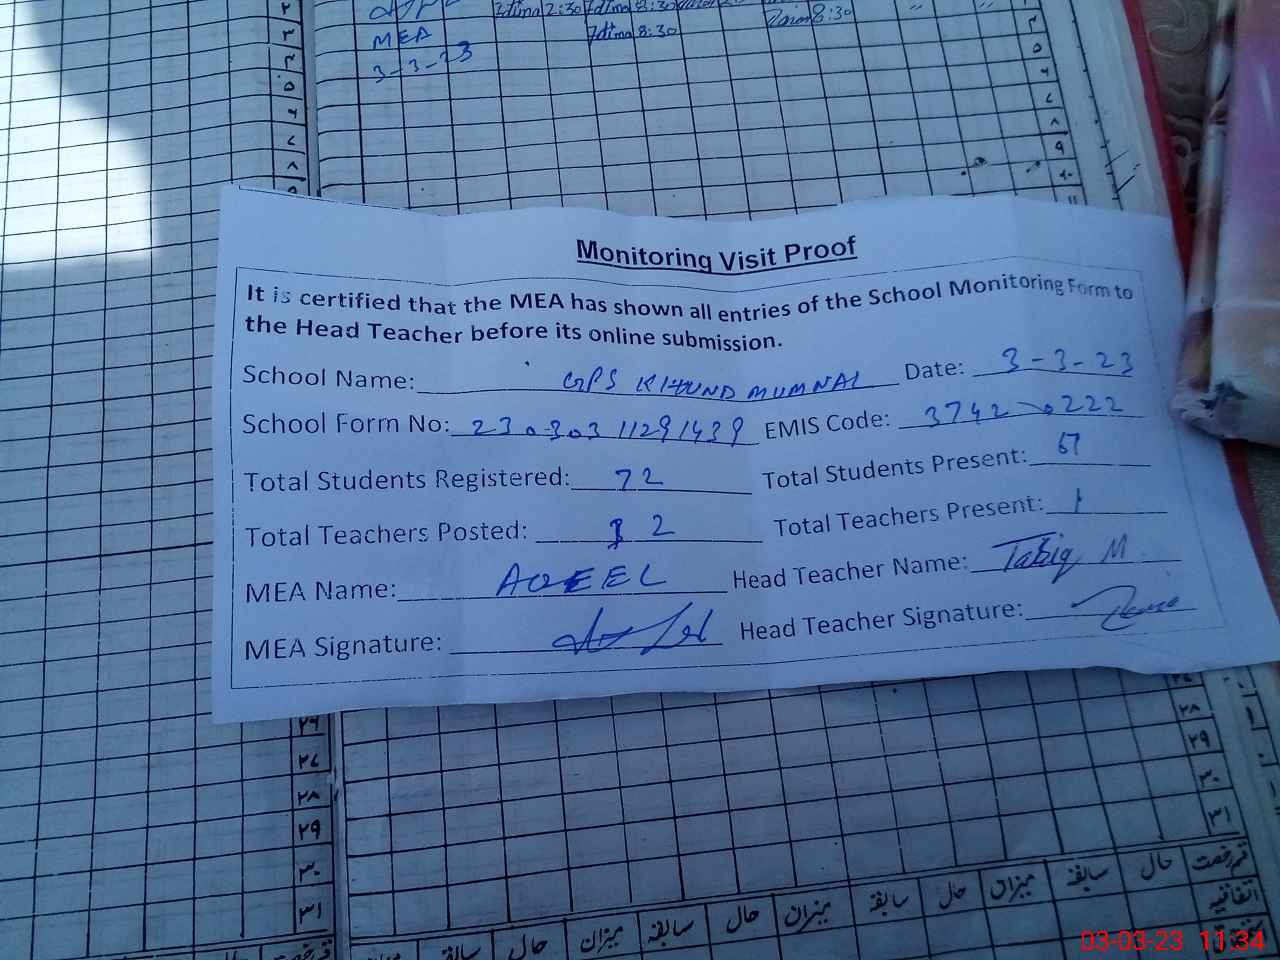 2:30 8:30 8:30
MEA 7dtma 8:30
3-3-23
Monitoring Visit Proof
It is certified that the MEA has shown all entries of the School Monitoring Form to
the Head Teacher before its online submission.
School Name: GPS KHUND MUMNAL Date: 3-3-23
School Form No: 23030311291439 EMIS Code: 37420222
Total Students Registered: 72 Total Students Present: 67
Total Teachers Posted: 2 Total Teachers Present: 1
MEA Name: AQEEL Head Teacher Name: Tabiq M
MEA Signature: Head Teacher Signature:
۲۸
۲۹
۳۰
۳۱
۲۶
۲۷
۲۸
۲۹
۳۰
۳۱
حال سابقہ میزان حال سابقہ میزان حال سابقہ میزان حال سابقہ قسم رخصت
اتفاقیہ
03-03-23 11:34